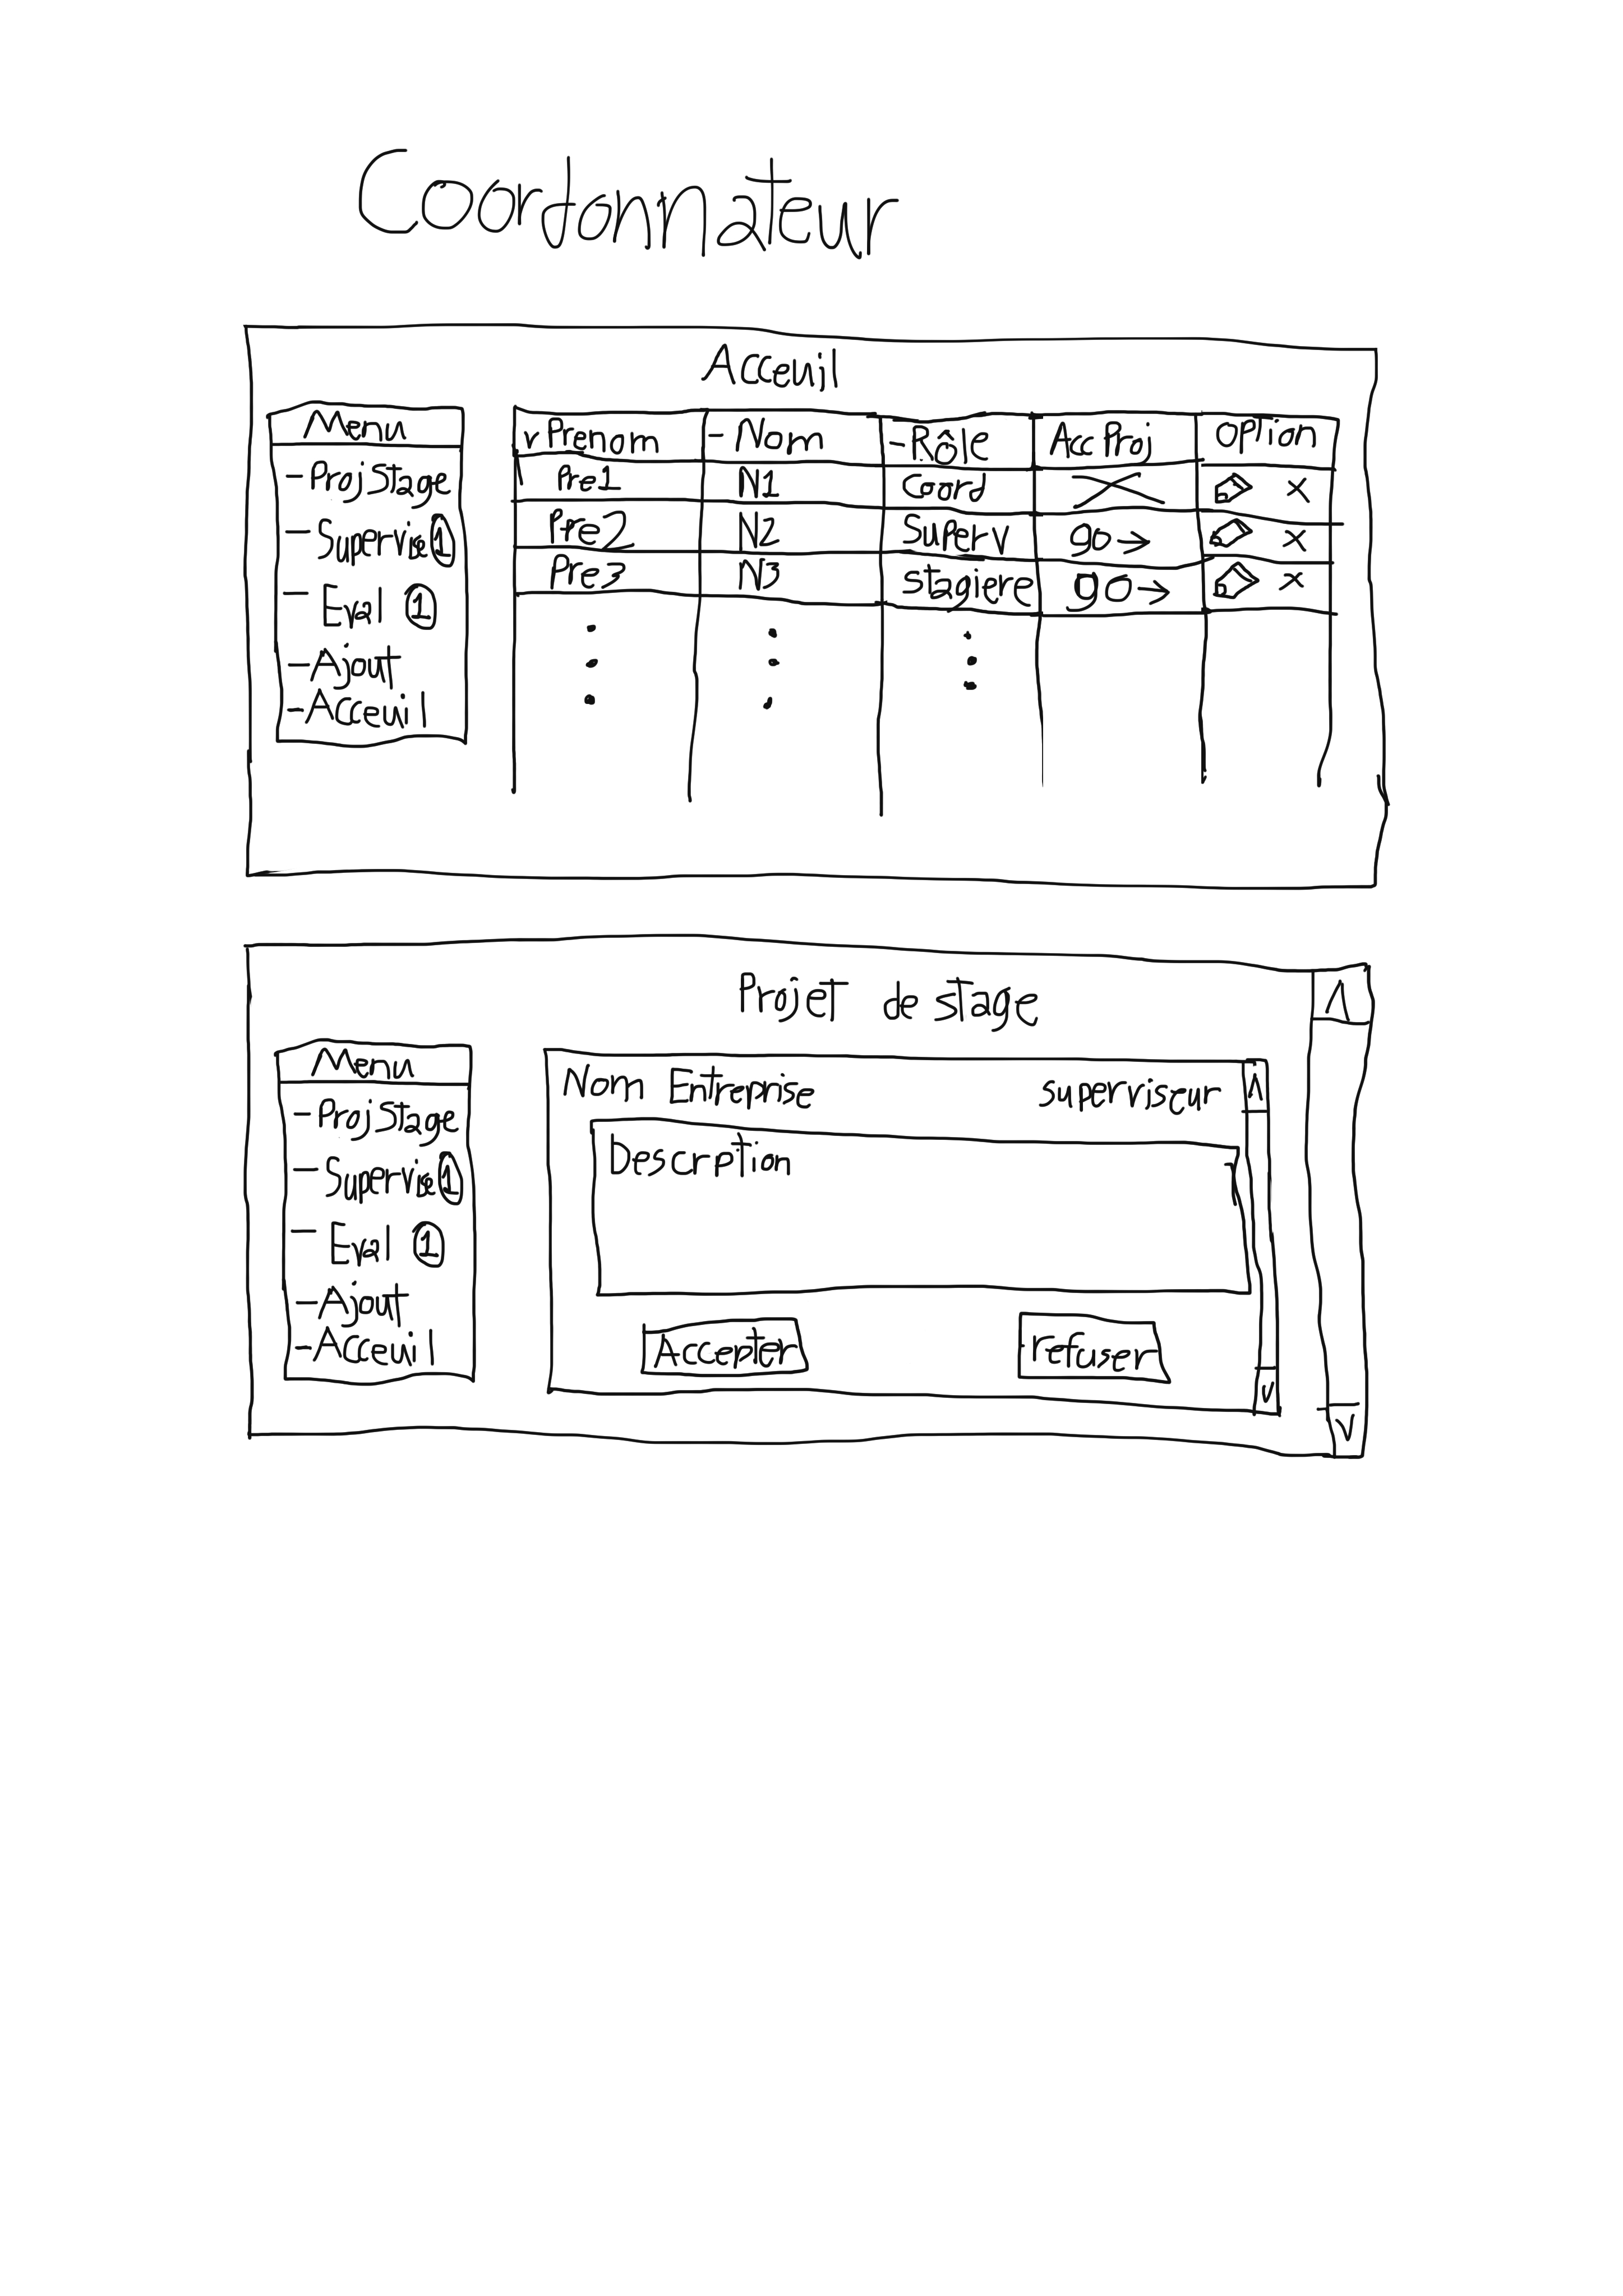 Coordonnateur
Acceuil
Menu
- ProjStage
- Supervise 1
- Eval 1
- Ajout
- Acceuil
v Prenom - Nom - Rôle Acc Proj Option
Pre1 N1 Coord X
Pre2 N2 Superv go → X
Pre3 N3 stagiere go → X
Projet de stage
Menu
- ProjStage
- Supervise 1
- Eval 1
- Ajout
- Acceuil
Nom Entreprise superviseur
Descrption
Accepter refuser